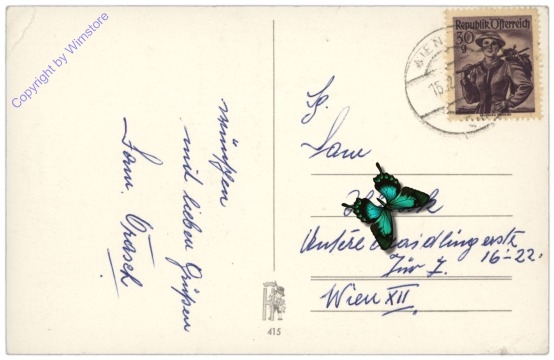 Copyright by Wimstore
wünschen
mit lieben Grüßen
Fam.
Republik Österreich
30
g
WIEN
15.2
Fam.
Untere Meidlingerstr.
16-22.
Tür 7.
Wien XII.
415